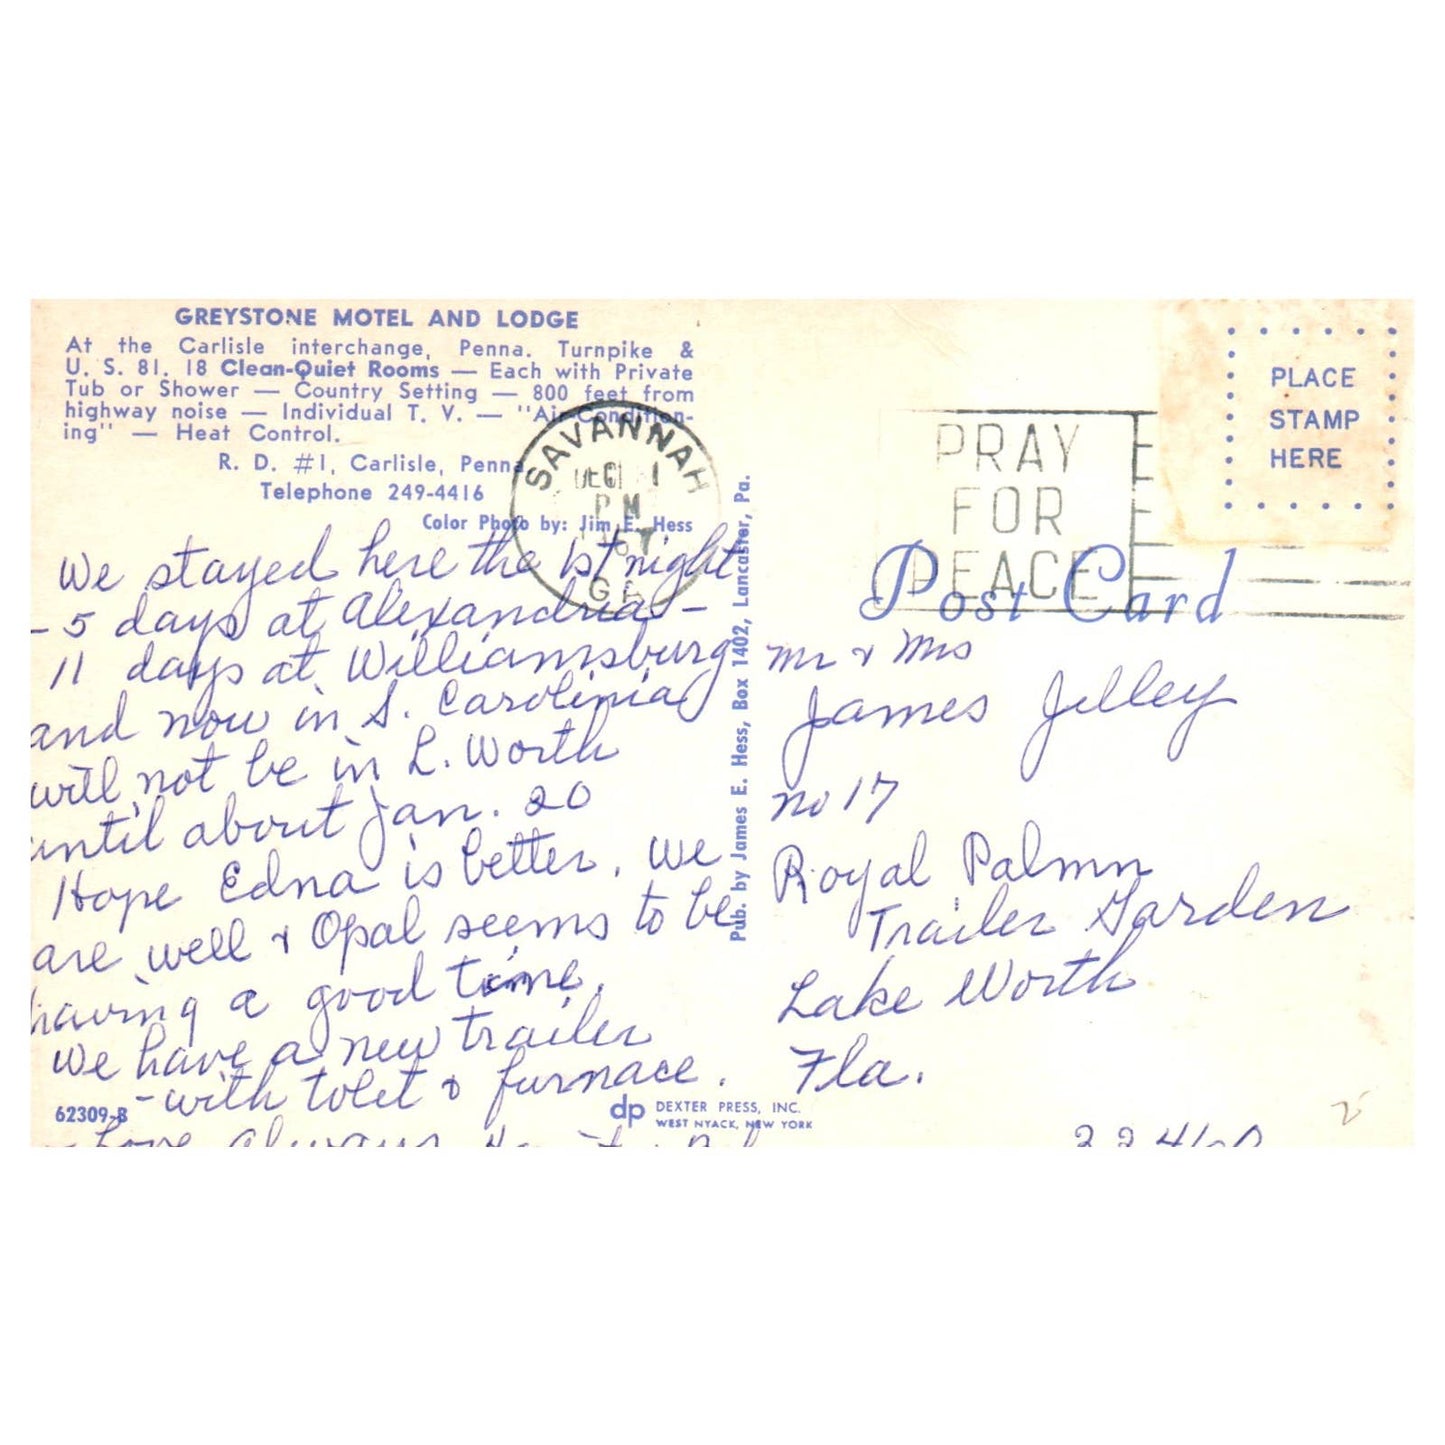 GREYSTONE MOTEL AND LODGE
At the Carlisle interchange, Penna. Turnpike &
U. S. 81. 18 Clean-Quiet Rooms — Each with Private
Tub or Shower — Country Setting — 800 feet from
highway noise — Individual T. V. — "Air-Condition-
ing" — Heat Control.
R. D. #1, Carlisle, Penna
Telephone 249-4416
Color Photo by: Jim E. Hess
We stayed here the 1st night
- 5 days at Alexandria -
11 days at Williamsburg
and now in S. Carolinia
will not be in L. Worth
until about Jan. 20
Hope Edna is better. We
are well & Opal seems to be
having a good time.
We have a new trailer
- with tolet & furnace.
Love always
62309-B
dp DEXTER PRESS, INC.
WEST NYACK, NEW YORK
Pub. by James E. Hess, Box 1402, Lancaster, Pa.
SAVANNAH
DEC 1
PM
GA
PRAY
FOR
PEACE
PLACE
STAMP
HERE
Post Card
Mr & Mrs
James Jilley
No 17
Royal Palmn
Trailer Garden
Lake Worth
Fla.
33460